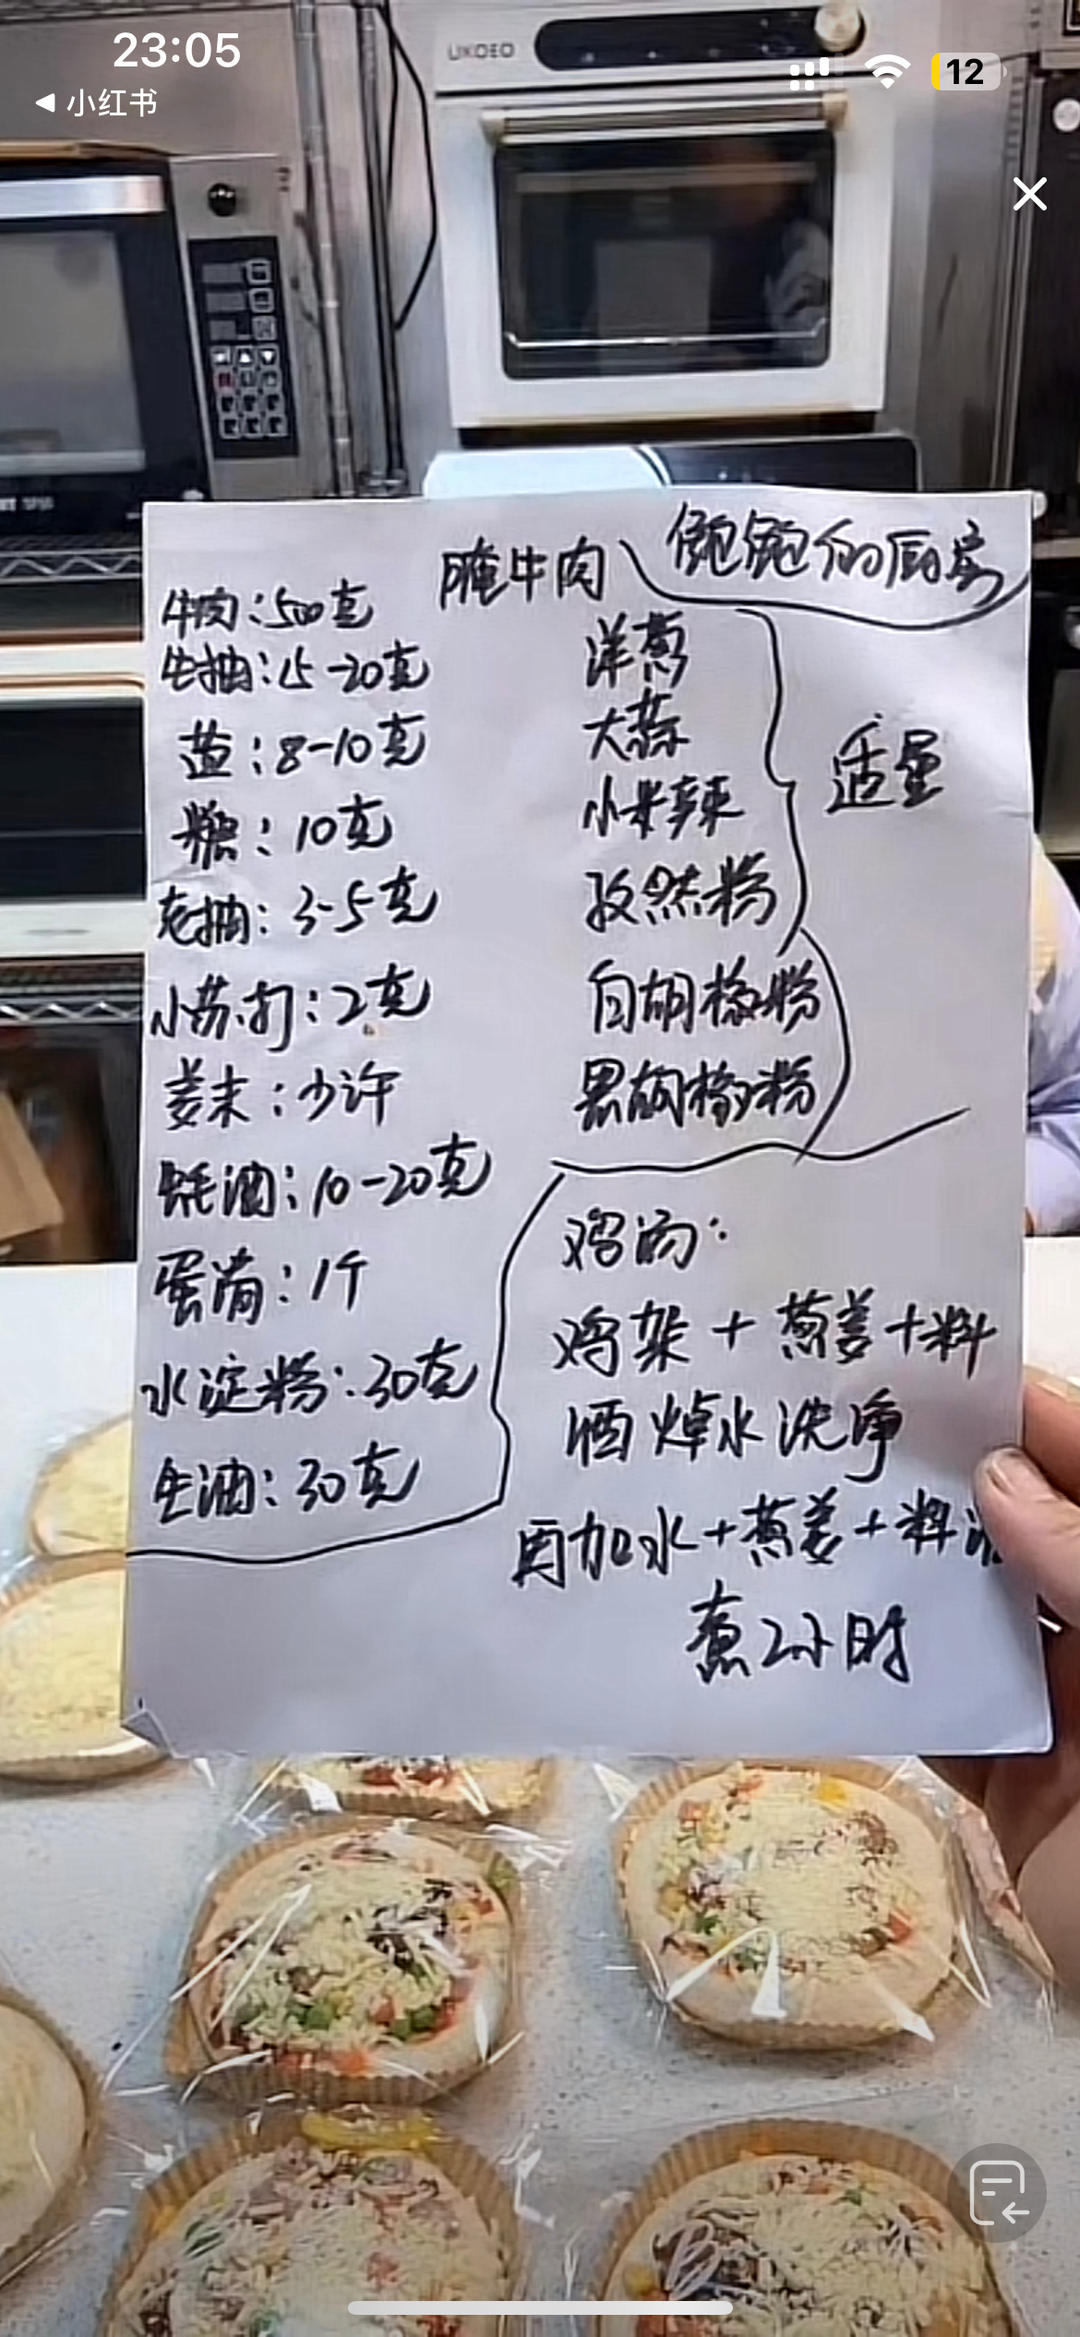 23:05
12
小红书
UKOEO
腌牛肉
饱饱的厨房
牛肉：500克
生抽：15-20克
盐：8-10克
糖：10克
老抽：3-5克
小苏打：2克
姜末：少许
蚝油：10-20克
蛋清：1个
水淀粉：30克
生油：30克
洋葱
大蒜
小米辣
孜然粉
白胡椒粉
黑胡椒粉
适量
鸡汤：
鸡架+葱姜+料
酒焯水洗净
再加水+葱姜+料酒
煮2小时